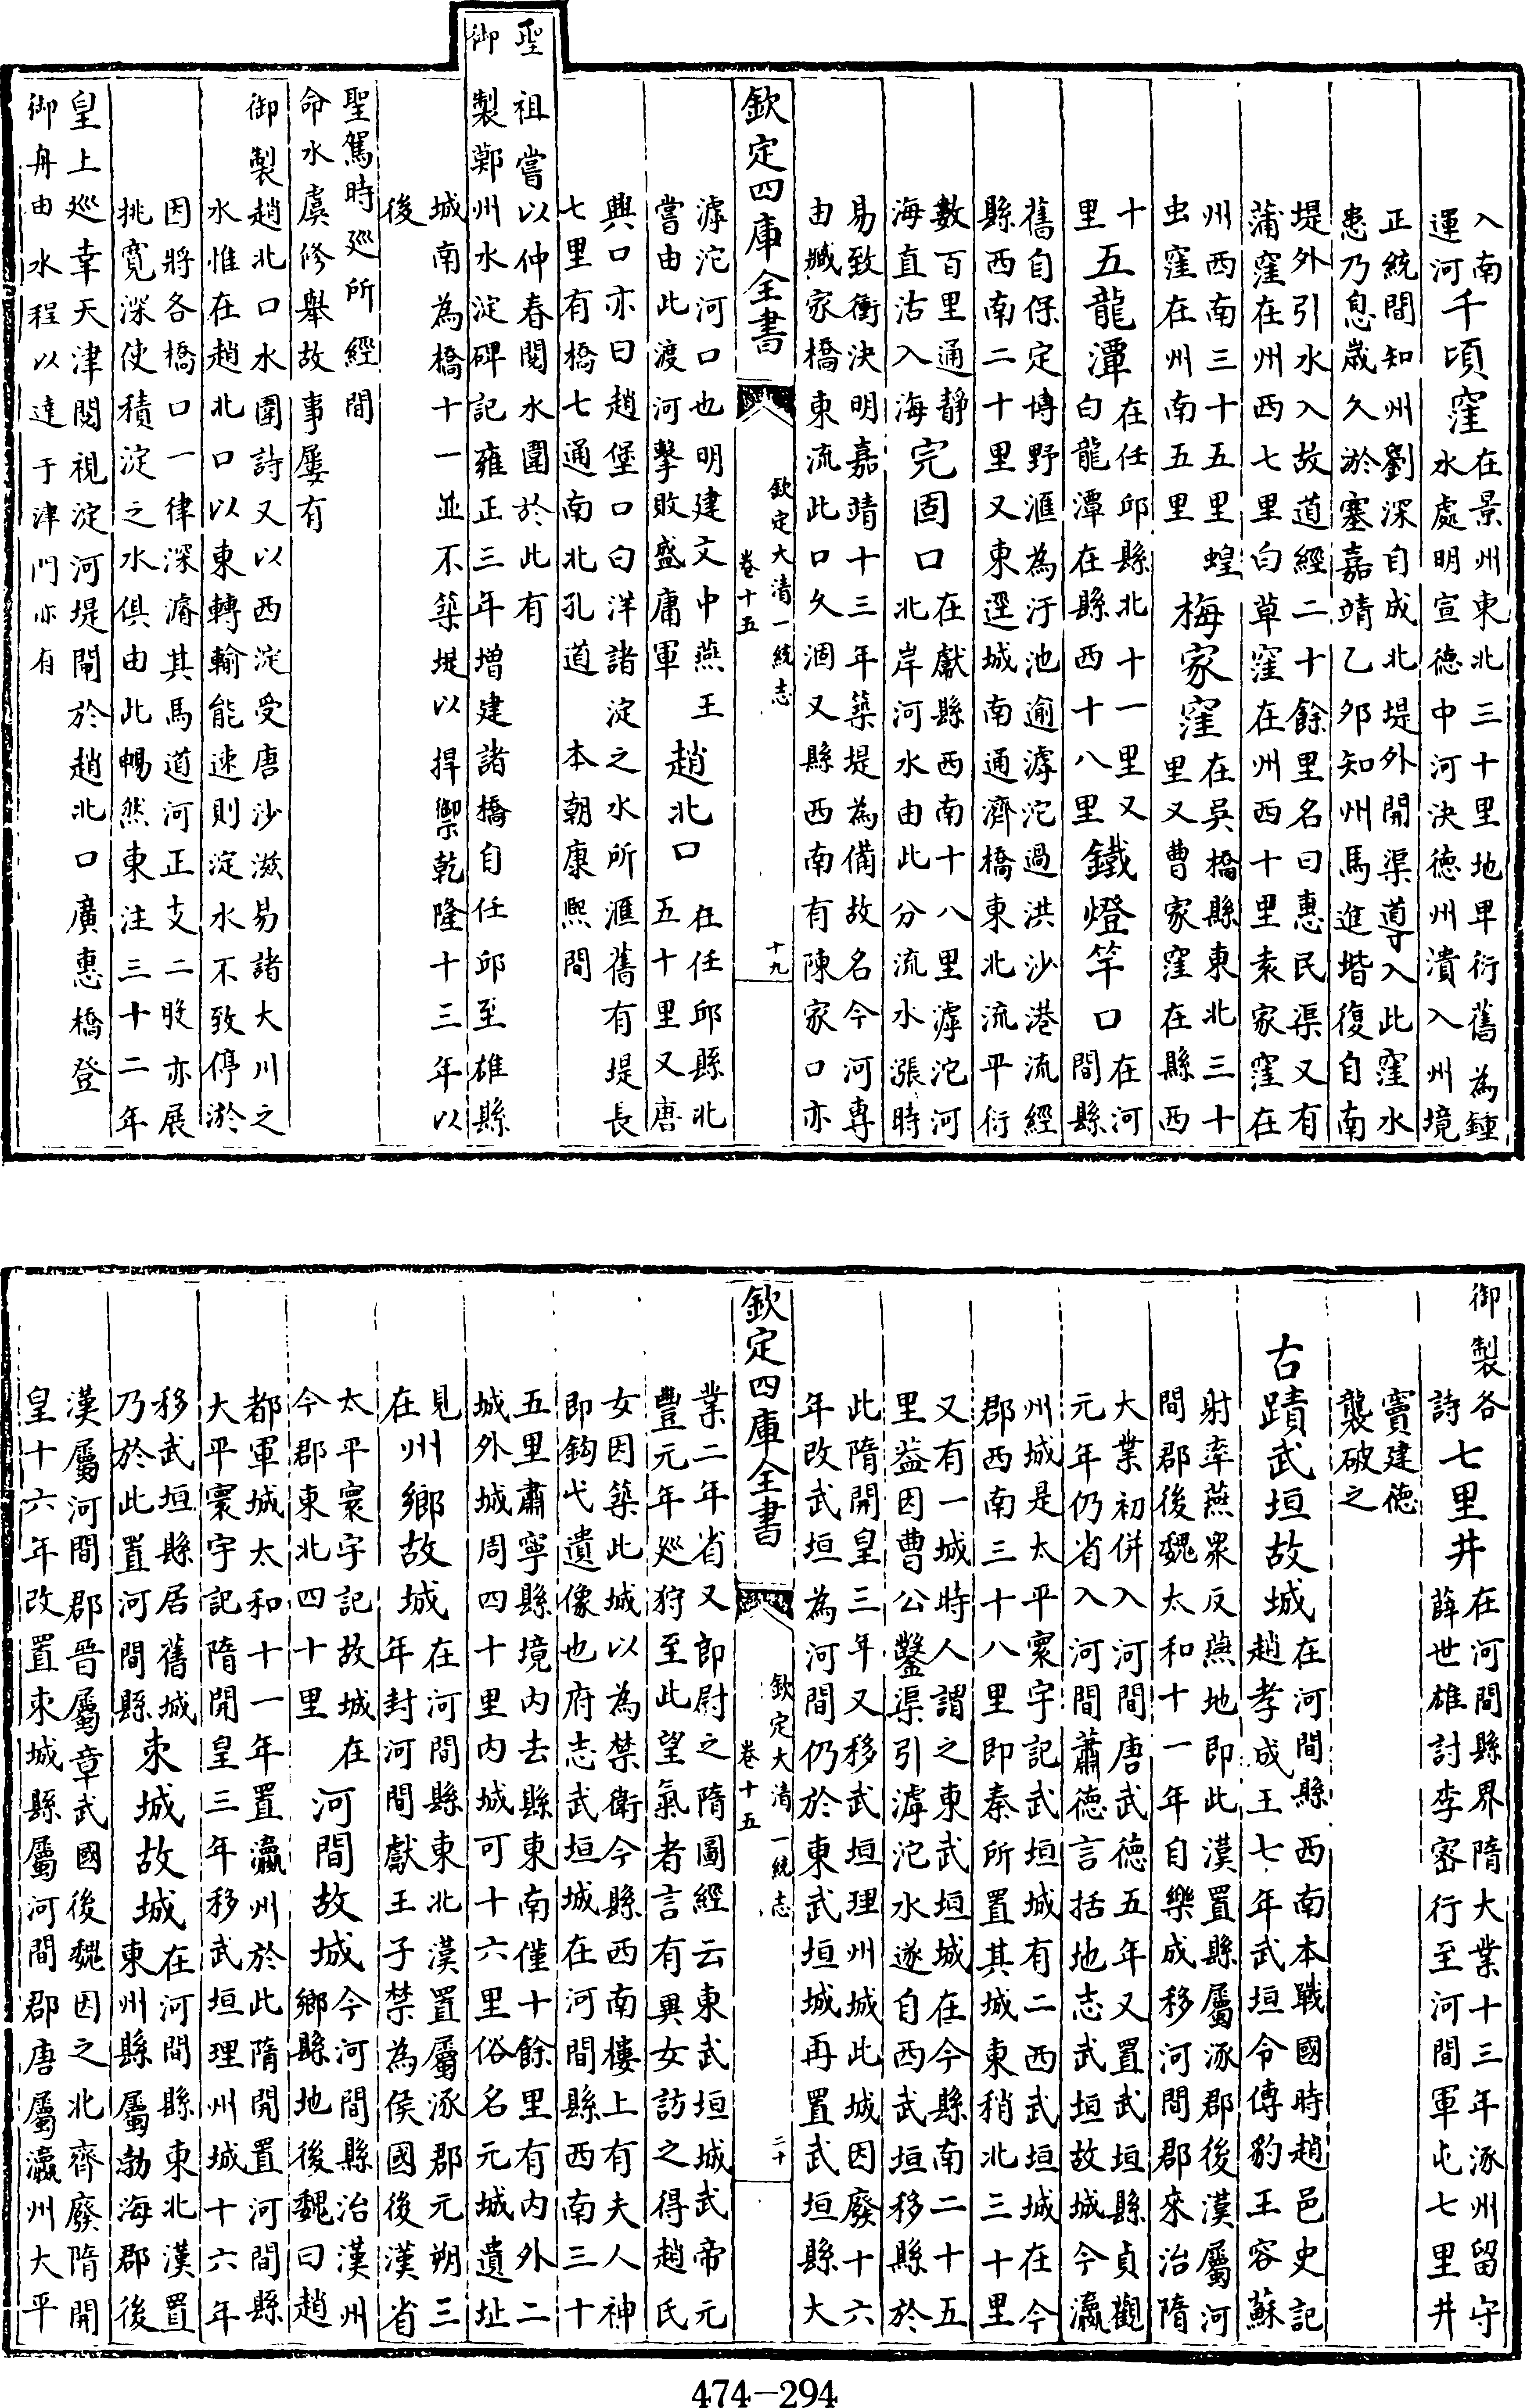 入南
運河
千頃窪
在景州東北三十里地卑衍舊為鍾
水處明宣德中河決德州潰入州境
正統間知州劉深自成北堤外開渠導入此窪水
患乃息歲久淤塞嘉靖乙夘知州馬進堦復自南
堤外引水入故道經二十餘里名曰惠民渠又有
蒲窪在州西七里白草窪在州西十里袁家窪在
州西南三十五里蝗
虫窪在州南五里
梅家窪
在吳橋縣東北三十
里又曹家窪在縣西
十
里
五龍潭
在任邱縣北十一里又
白龍潭在縣西十八里
鐵燈竿口
在河
間縣
舊自保定博野滙為汙池逾滹沱過洪沙港流經
縣西南二十里又東逕城南通濟橋東北流平衍
數百里通靜
海直沽入海
完固口
在獻縣西南十八里滹沱河
北岸河水由此分流水漲時
易致衝決明嘉靖十三年築堤為備故名今河專
由臧家橋東流此口久涸又縣西南有陳家口亦
欽定四庫全書
欽定大清一統志
卷十五
十九
滹沱河口也明建文中燕王
嘗由此渡河擊敗盛庸軍
趙北口
在任邱縣北
五十里又唐
興口亦曰趙堡口白洋諸淀之水所滙舊有堤長
七里有橋七通南北孔道 本朝康熙間
聖祖嘗以仲春閱水圍於此有
御製鄭州水淀碑記雍正三年增建諸橋自任邱至雄縣
城南為橋十一並不築堤以捍禦乾隆十三年以
後
聖駕時廵所經間
命水虞修舉故事屢有
御製趙北口水圍詩又以西淀受唐沙滋易諸大川之
水惟在趙北口以東轉輸能速則淀水不致停淤
因將各橋口一律深濬其馬道河正支二股亦展
挑寬深使積淀之水俱由此暢然東注三十二年
皇上廵幸天津閱視淀河堤閘於趙北口廣惠橋登
御舟由水程以達于津門亦有
御製各
詩
七里井
在河間縣界隋大業十三年涿州留守
薛世雄討李密行至河間軍屯七里井
竇建德
襲破之
古蹟
武垣故城
在河間縣西南本戰國時趙邑史記
趙孝成王七年武垣令傅豹王容蘇
射率燕衆反燕地即此漢置縣屬涿郡後漢屬河
間郡後魏太和十一年自樂成移河間郡來治隋
大業初併入河間唐武德五年又置武垣縣貞觀
元年仍省入河間蕭德言括地志武垣故城今瀛
州城是太平寰宇記武垣城有二西武垣城在今
郡西南三十八里即秦所置其城東稍北三十里
又有一城時人謂之東武垣城在今縣南二十五
里葢因曹公鑿渠引滹沱水遂自西武垣移縣於
此隋開皇三年又移武垣理州城此城因廢十六
年改武垣為河間仍於東武垣城再置武垣縣大
欽定四庫全書
欽定大清一統志
卷十五
二十
業二年省又即尉之隋圖經云東武垣城武帝元
豐元年廵狩至此望氣者言有異女訪之得趙氏
女因築此城以為禁衛今縣西南樓上有夫人神
即鈎弋遺像也府志武垣城在河間縣西南三十
五里肅寧縣境內去縣東南僅十餘里有內外二
城外城周四十里內城可十六里俗名元城遺址
見
在
州鄉故城
在河間縣東北漢置屬涿郡元朔三
年封河間獻王子禁為侯國後漢省
太平寰宇記故城在
今郡東北四十里
河間故城
今河間縣治漢州
鄉縣地後魏曰趙
都軍城太和十一年置瀛州於此隋開置河間縣
大平寰宇記隋開皇三年移武垣理州城十六年
移武垣縣居舊城
乃於此置河間縣
束城故城
在河間縣東北漢置
東州縣屬勃海郡後
漢屬河間郡晉屬章武國後魏因之北齊廢隋開
皇十六年改置束城縣屬河間郡唐屬瀛州大平
474—294